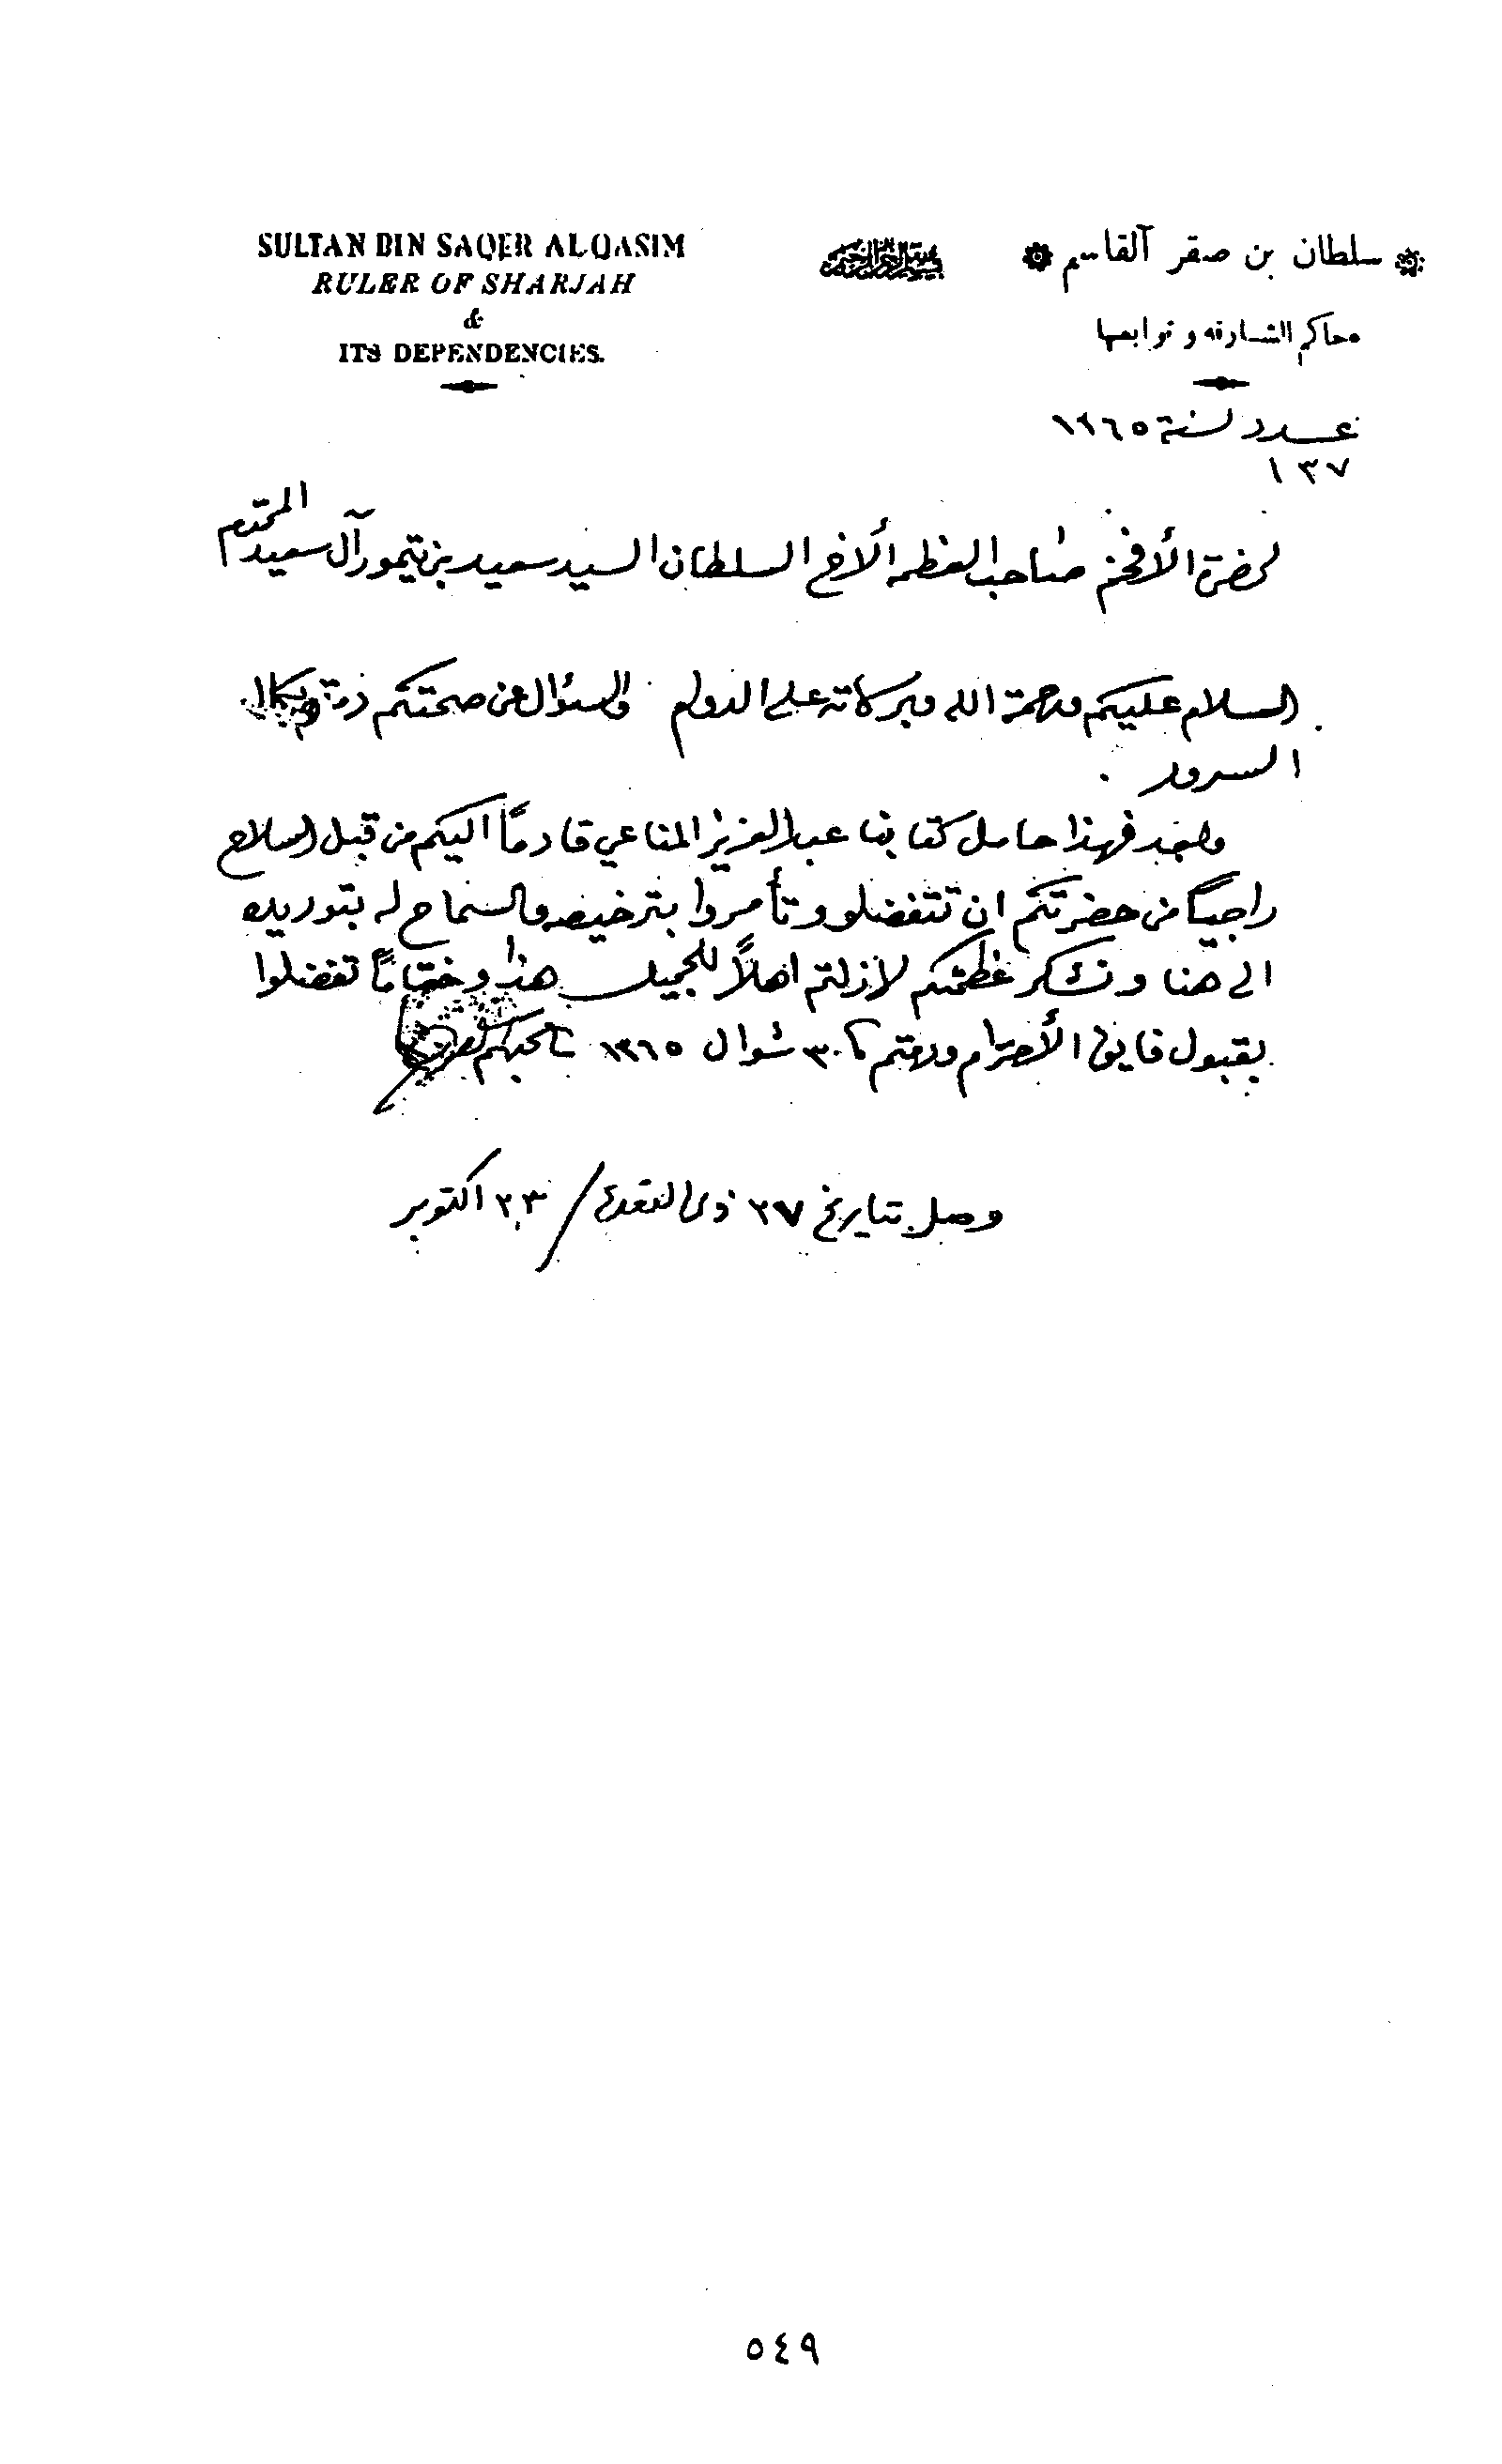 SULTAN BIN SAQER ALQASIM
RULER OF SHARJAH
&
ITS DEPENDENCIES.
بسم الله الرحمن الرحيم
سلطان بن صقر آلقاسم
حاكم الشارقه و توابعها
عدد لسنة ١٣٦٥
١٣٧
لحضرة الأفخم صاحب العظمه الأخ السلطان السيد سعيد بن تيمور آل سعيد المحترم
السلام عليكم ورحمة الله وبركاته على الدوام والسؤال عن صحتكم دمتم بكمال
السرور .
وبعد فهذا حامل كتابنا عبدالعزيز المناعي قادماً اليكم من قبل السلاح
راجياً من حضرتكم ان تتفضلو وتأمروا بترخيصه والسماح له بتوريده
الى هنا ونشكر عظمتكم لازلتم اهلاً للجميل هذا وختاماً تفضلوا
بقبول فايق الأحترام ودمتم ٣٠ شوال ١٣٦٥
وصل بتاريخ ٢٧ ذى القعدة / ٢٣ اكتوبر
٥٤٩